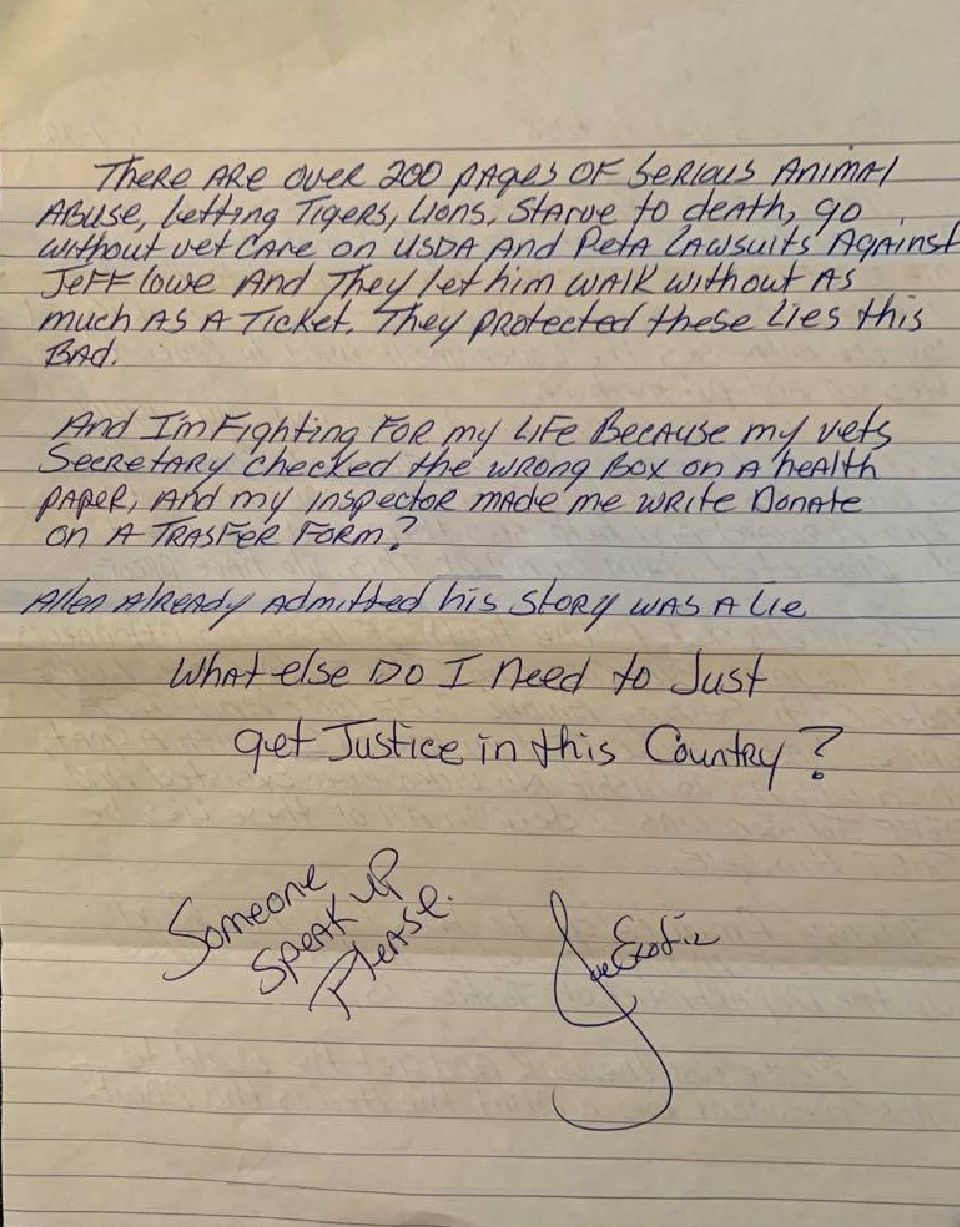 There are over 200 pages of serious animal
abuse, letting Tigers, Lions, starve to death, go
without vet care on USDA and Peta lawsuits against
Jeff Lowe and They let him walk without as
much as a Ticket. They protected these lies this
Bad.
And I'm Fighting For my life Because my vets
Secretary checked the wrong Box on a health
paper, and my inspector made me write Donate
on a Trasfer Form?
Allen Already admitted his story was a lie
What else Do I need to Just
get Justice in this Country?
Someone
speak up
Please.
Joe Exotic